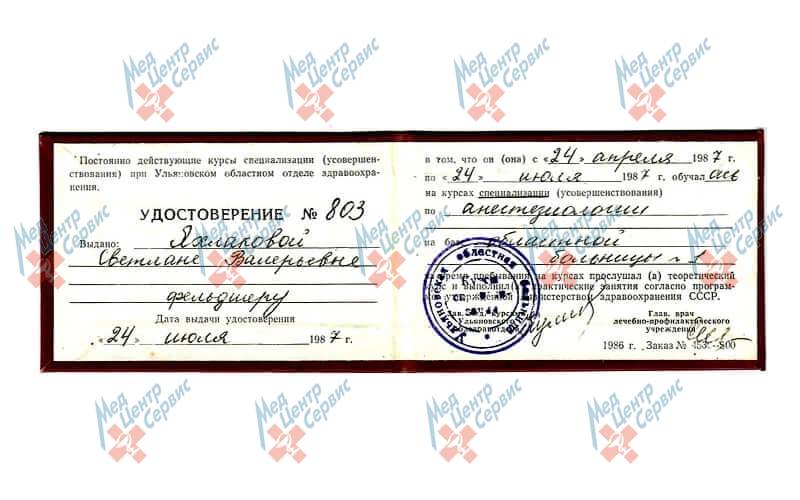 Постоянно действующие курсы специализации (усовершен-
ствования) при Ульяновском областном отделе здравоохра-
нения.
УДОСТОВЕРЕНИЕ № 803
Выдано: Яхлаковой
Светлане Валерьевне
фельдшеру
Дата выдачи удостоверения
«24» июля 1987 г.
в том, что он (она) с «24» апреля 1987 г.
по «24» июля 1987 г. обучал ась
на курсах специализации (усовершенствования)
по анестезиологии
на базе областной
больницы № 1
время пребывания на курсах прослушал (а) теоретический
курс и выполнил (а) практические занятия согласно програм-
утвержденной Министерством здравоохранения СССР.
Зав. курсами
Ульяновского
облздравотдела
Глав. врач
лечебно-профилактического
учреждения
1986 г. Заказ № 453—800
Ульяновская областная больница
Мед Центр Сервис
Мед Центр Сервис
Мед Центр Сервис
Мед Центр Сервис
Мед Центр Сервис
Мед Центр Сервис
Мед Центр Сервис
Мед Центр Сервис
Мед Центр Сервис
Мед Центр Сервис
Мед Центр Сервис
Мед Центр Сервис